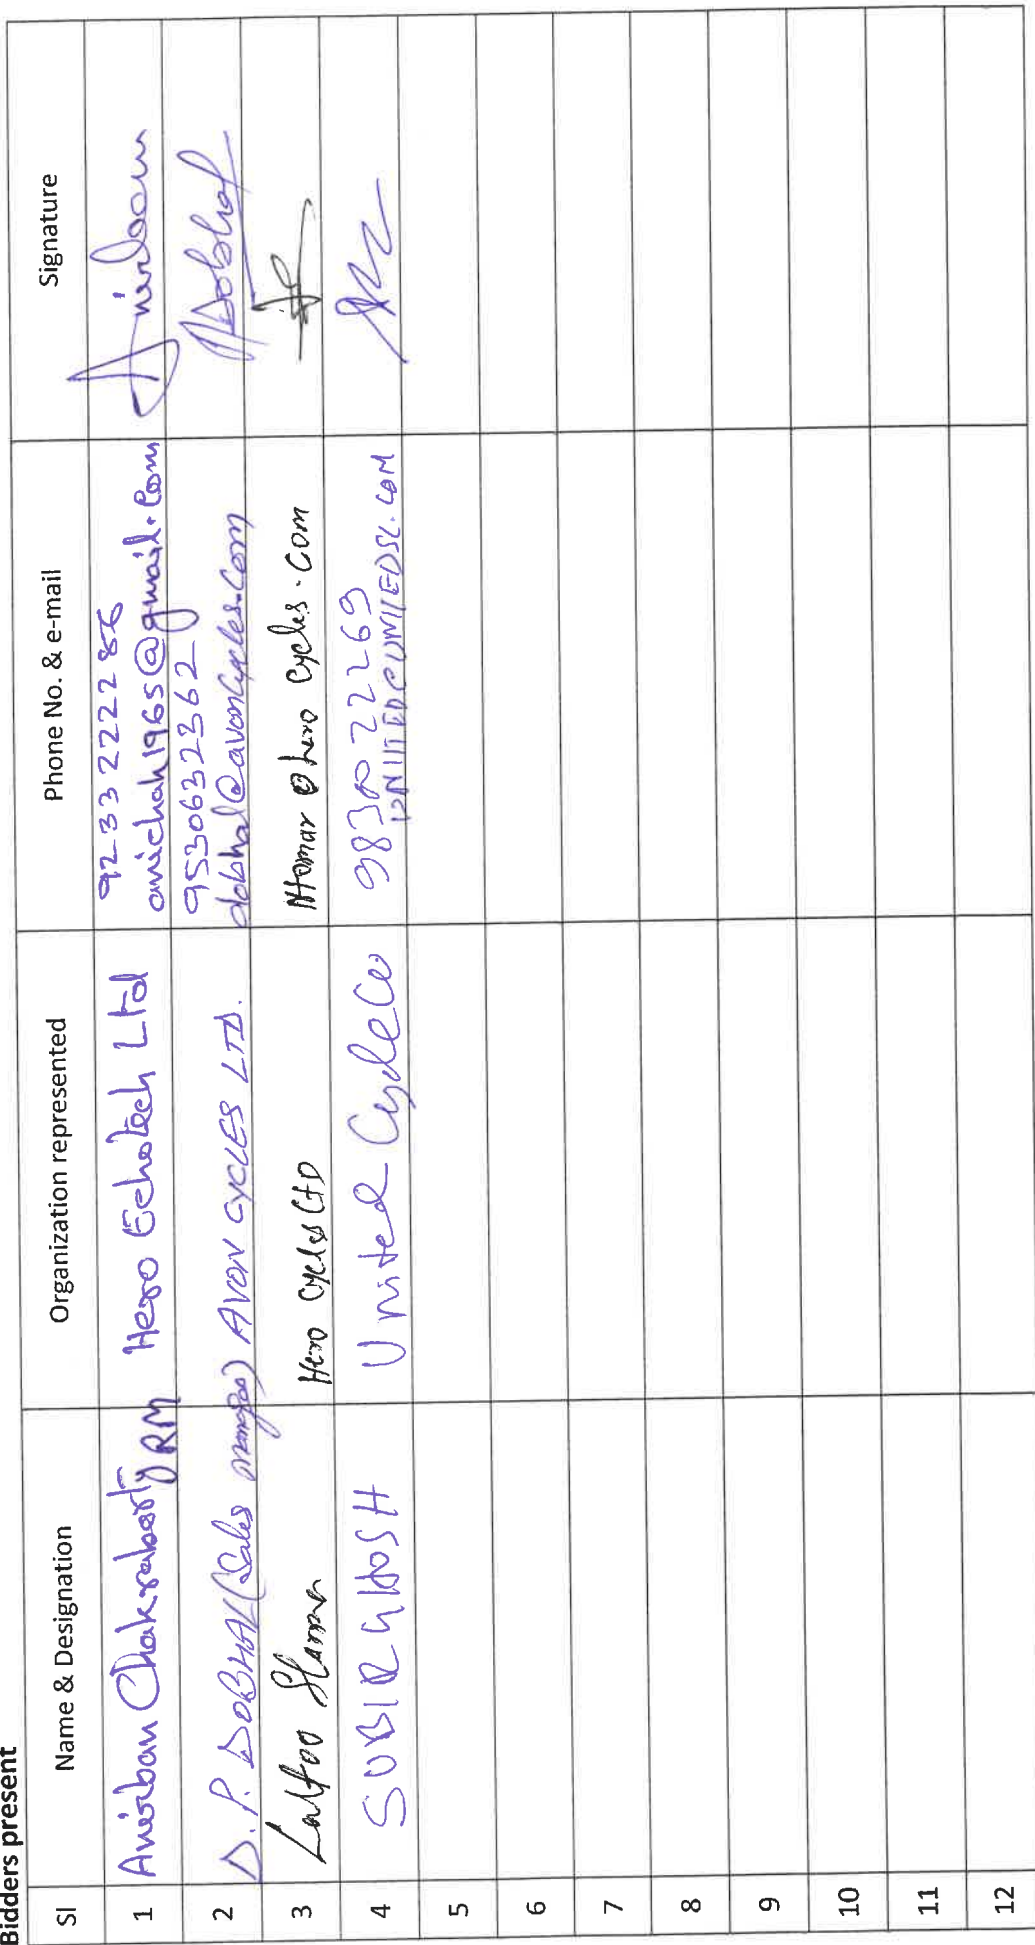 Bidders present
Sl Name & Designation Organization represented Phone No. & e-mail Signature
1 Anirban Chakraborty RM Hero Echotech Ltd 9233222286
anichak1965@gmail.com Anirban
2 D.P. DOBHAL (Sales manager) AVON CYCLES LTD. 9530632362
dobhal@avoncycles.com Dobhal
3 Sharma Hero Cycles LTD Ntomar@herocycles.com
4 SUBIR GHOSH United Cycle Co 9830022269
5
6
7
8
9
10
11
12